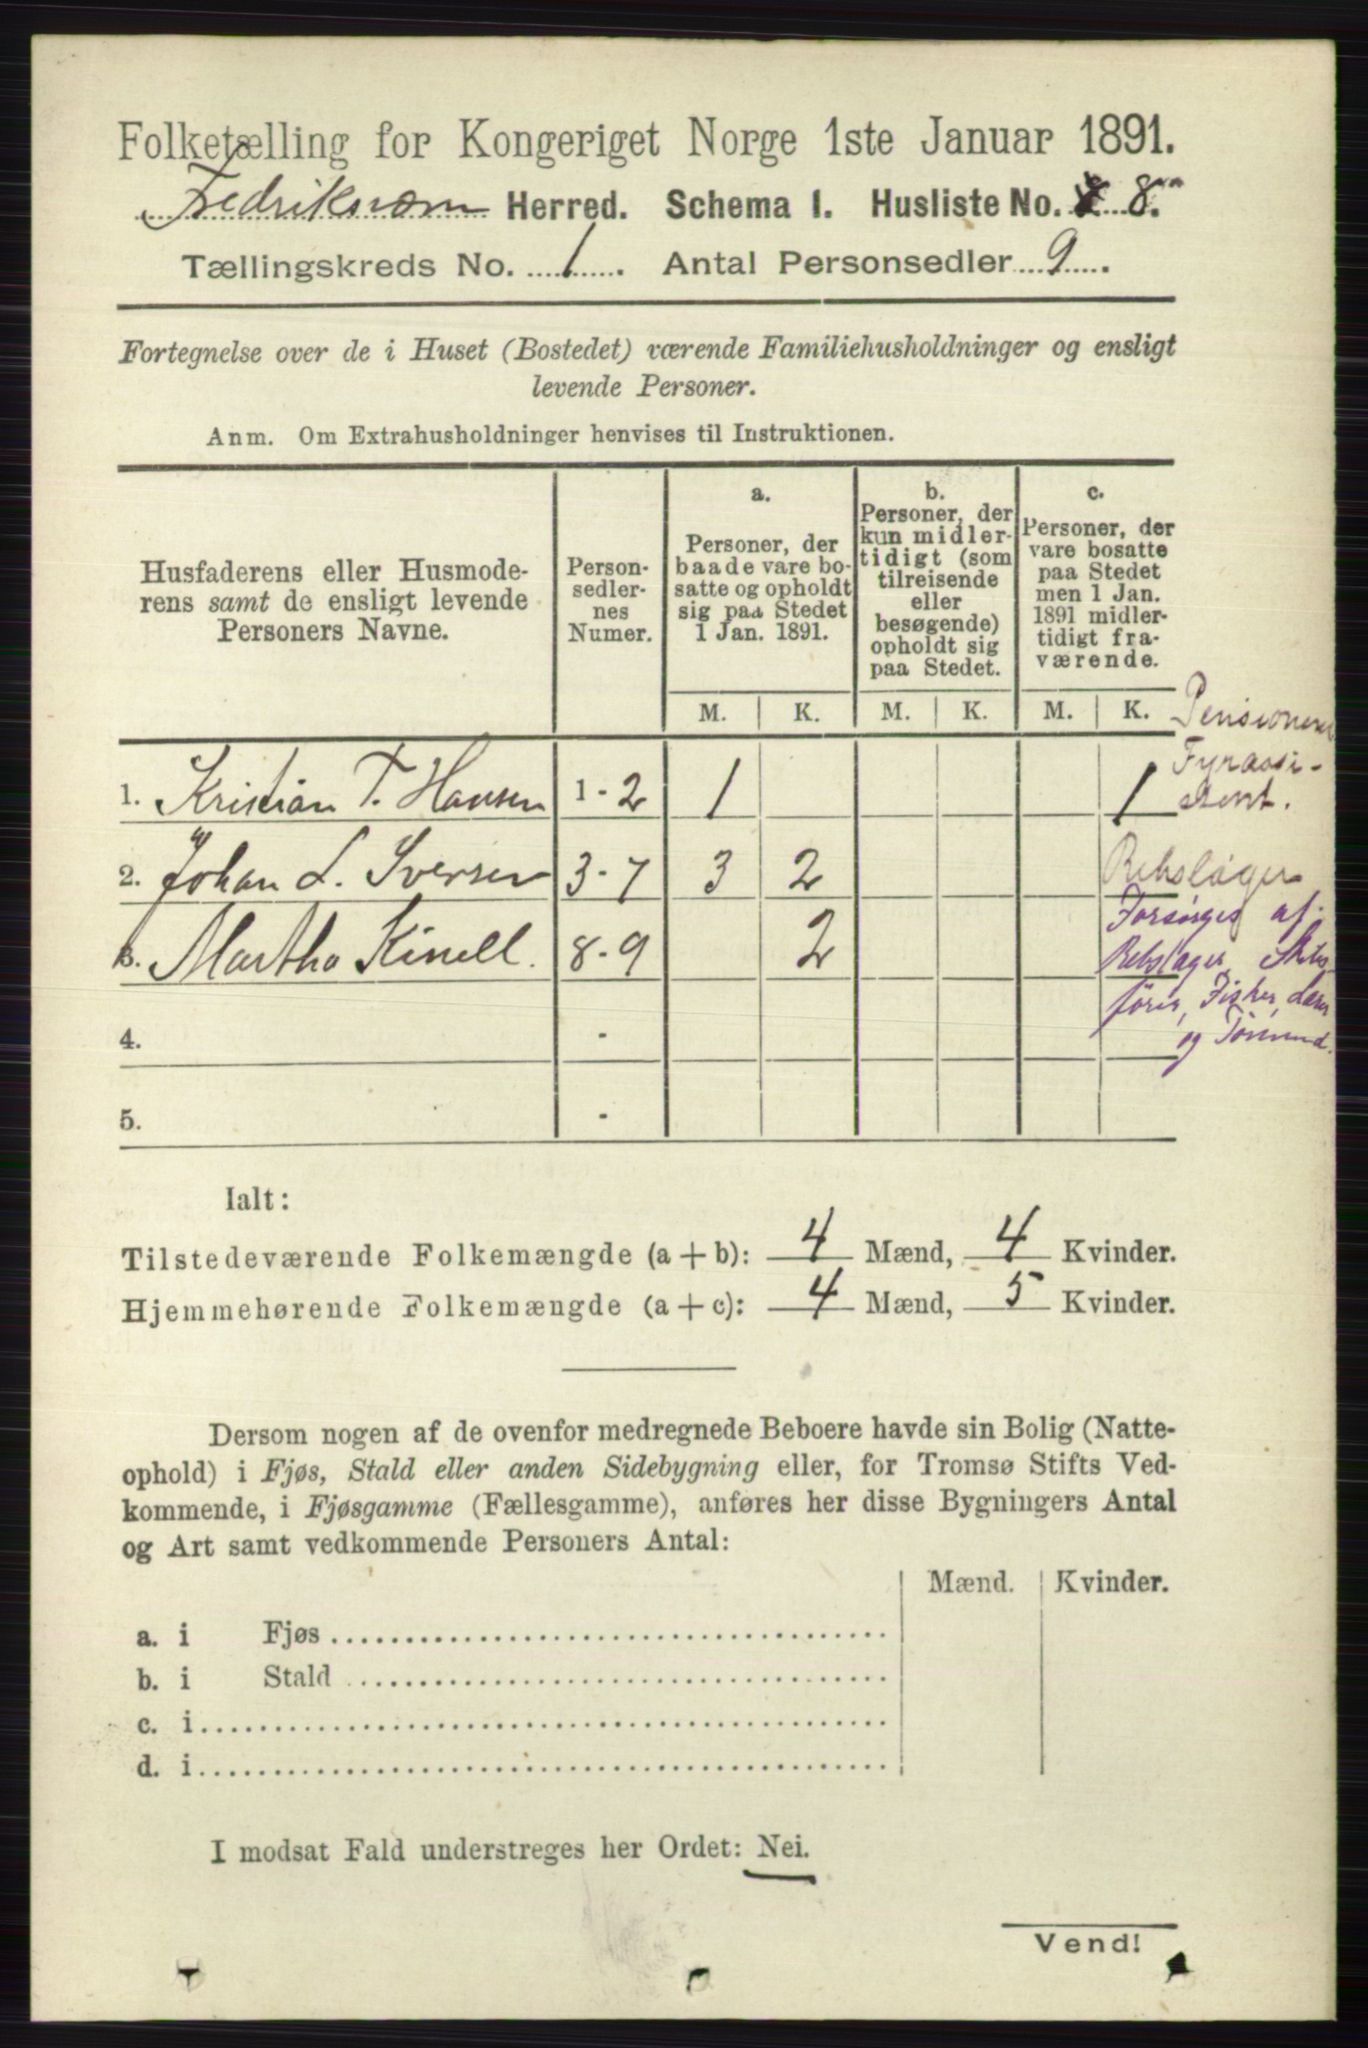 Folketælling for Kongeriget Norge 1ste Januar 1891.
Fredriksværn Herred. Schema I. Husliste No. 8.
Tællingskreds No. 1. Antal Personsedler 9.
Fortegnelse over de i Huset (Bostedet) værende Familiehusholdninger og ensligt
levende Personer.
Anm. Om Extrahusholdninger henvises til Instruktionen.
Husfaderens eller Husmode-
rens samt de ensligt levende
Personers Navne.
Person-
sedler-
nes
Numer.
a.
Personer, der
baade vare bo-
satte og opholdt
sig paa Stedet
1 Jan. 1891.
b.
Personer, der
kun midler-
tidigt (som
tilreisende
eller
besøgende)
opholdt sig
paa Stedet.
c.
Personer, der
vare bosatte
paa Stedet
men 1 Jan.
1891 midler-
tidigt fra-
værende.
M. K. M. K. M. K.
1. Kristian T. Hansen 1-2 1 1
Fyrassi-
stent.
2. Johan L. Iversen 3-7 3 2 Rebslager
3. Martha Kinell. 8-9 2
Forsørges af
Rebslager,
Fisker,
og
4. -
5. -
Ialt:
Tilstedeværende Folkemængde (a + b): 4 Mænd, 4 Kvinder.
Hjemmehørende Folkemængde (a + c): 4 Mænd, 5 Kvinder.
Dersom nogen af de ovenfor medregnede Beboere havde sin Bolig (Natte-
ophold) i Fjøs, Stald eller anden Sidebygning eller, for Tromsø Stifts Ved-
kommende, i Fjøsgamme (Fællesgamme), anføres her disse Bygningers Antal
og Art samt vedkommende Personers Antal:
Mænd. Kvinder.
a. i Fjøs
b. i Stald
c. i
d. i
I modsat Fald understreges her Ordet: Nei.
Vend!